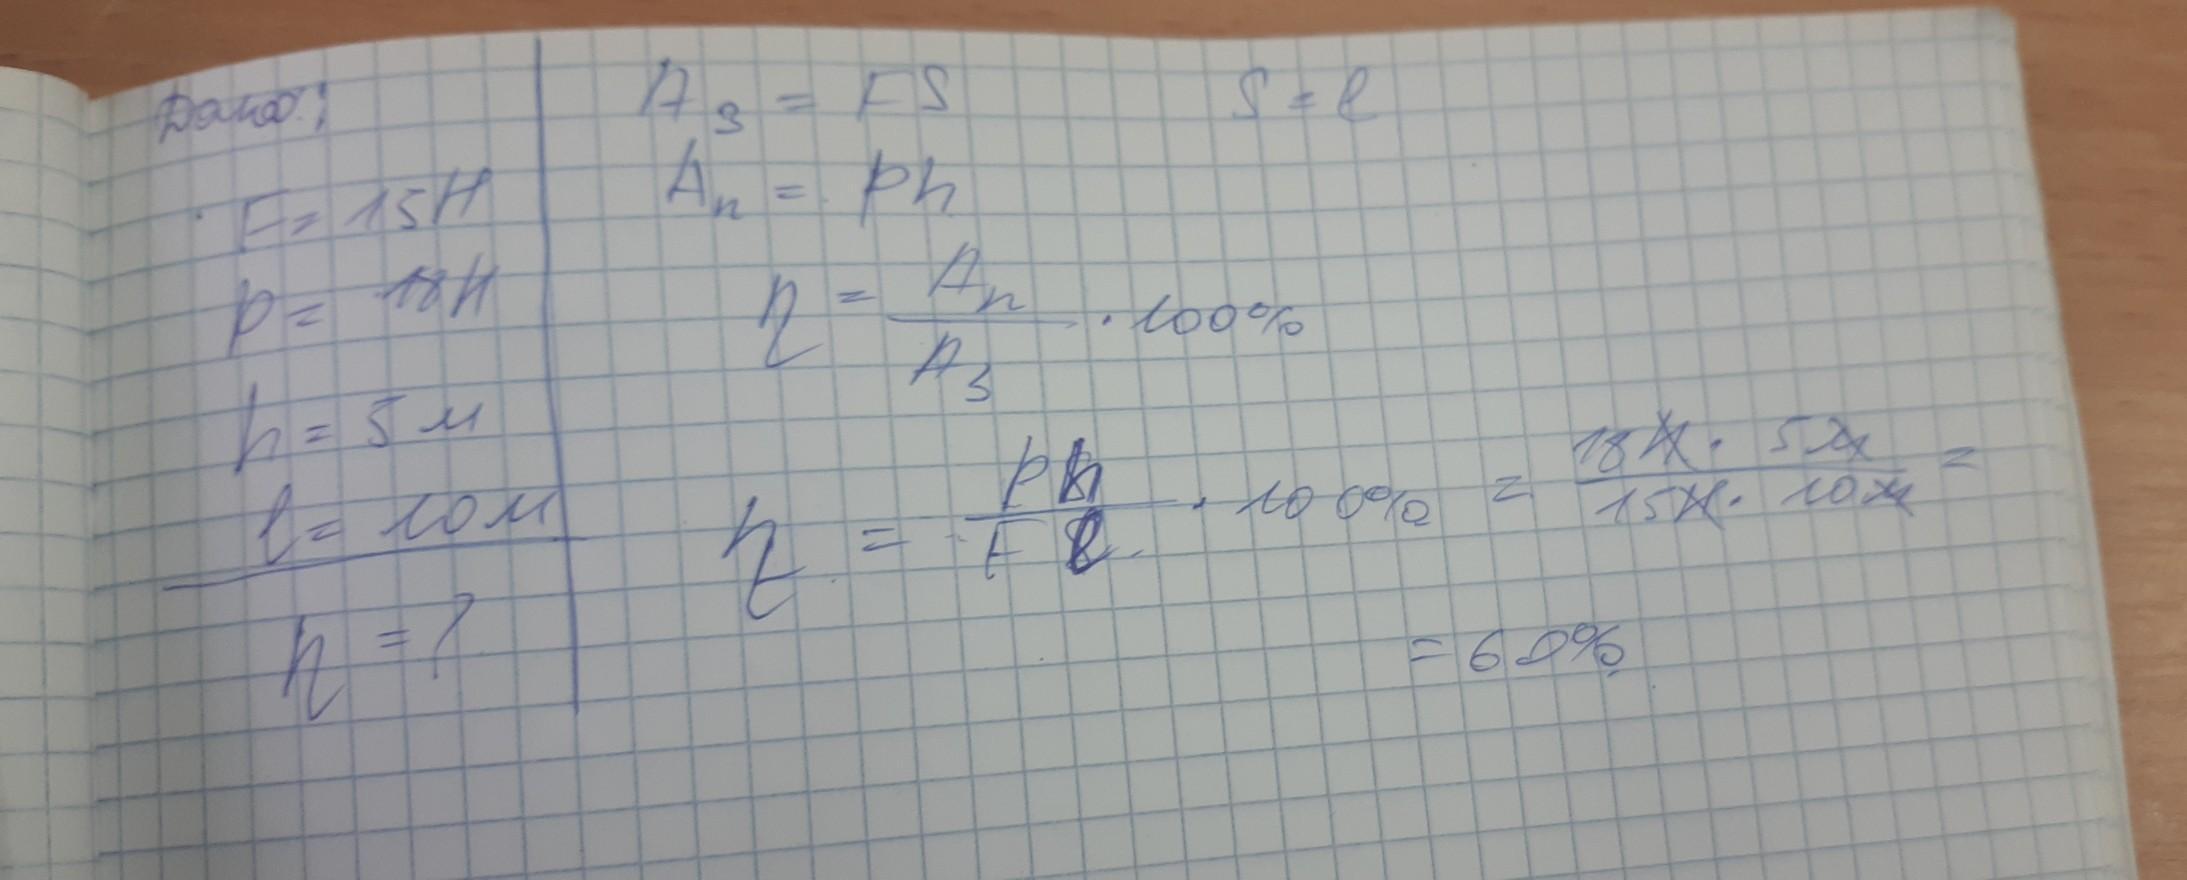 Дано:
F = 15Н
p = 18Н
h = 5 м
l = 10 м
η = ?
Aз = FS    S = l
Aп = ph
η = Aп / Aз · 100%
η = ph / Fl · 100% = 18Н · 5м / 15Н · 10м =
= 60%